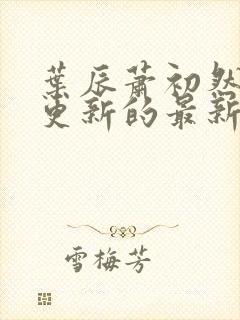 葉辰蕭初然
更新的最新
雪梅芳